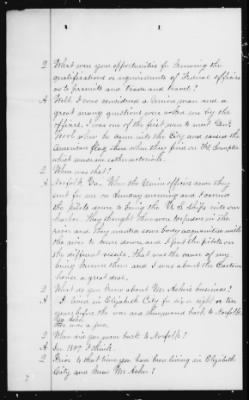 Q What were your opportunities for knowing the
qualifications or requirements of Federal officers
as to permits and trade and travel?
A Well I was considered a Union man and a
great many questions were asked me by the
officers. I was one of the first men to meet Genl
Wool when he came into the City and raised the
American flag there when they fired on Ft Sumpter
which made me rather noticeable.
Q When was that?
A Norfolk Va. When the Union officers came they
sent for me on Sunday morning and
the pilots down to bring the U. S. Ships into our
harbor. They thought there were torpedoes in the
river and they wanted some body acquainted with
the river to come down and I put the pilots on
the different vessels, that was the cause of my
being known there and I was about the Custom
house a great deal.
Q What do you know about Mr business?
A I lived in Elizabeth City for six or eight or ten
years before the war and then moved back to Norfolk
Q When did you move back to Norfolk?
A In 1857 I think.
Q Prior to that time you have been living in Elizabeth
City and knew Mr